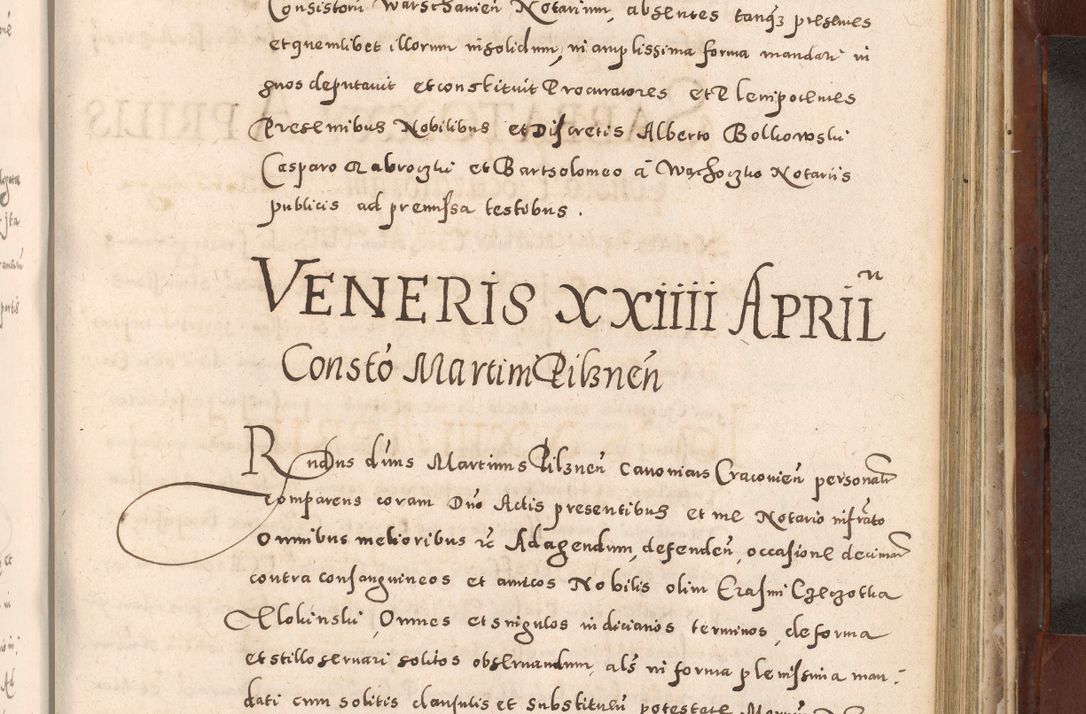 Consistorii Warschavien̄ Notarium, absentes tanq̄ꝫ presentes
et quemlibet illorum insolidum, in amplissima forma mandati in
quos deputavit et constituit Procuratores et Plenipotentes
Presentibus Nobilibus et Discretis Alberto Bolkowski
Casparo et Bartholomeo ā Wąchoczko Notariis
publicis ad premissa testibus.
VENERIS XXIIII APRILⁿ
Constō Martini Pilznen̄
Rndus dn̄us Martinus Pilznen̄ Canonicus Cracovien̄ personatr
comparens coram Dn̄o Actis presentibus et me Notario infrāto
Omnibus melioribus etc Ad agendum, defenden̄, occasione decimar
contra consanguineos et amicos Nobilis olim Erasmi Czeczotka
Omnes et singulos iudiciarios terminos, de forma
et stillo servari solitos observandum, als in forma plenissima man-
dati cum solitis clausulis et substituen̄ potestate